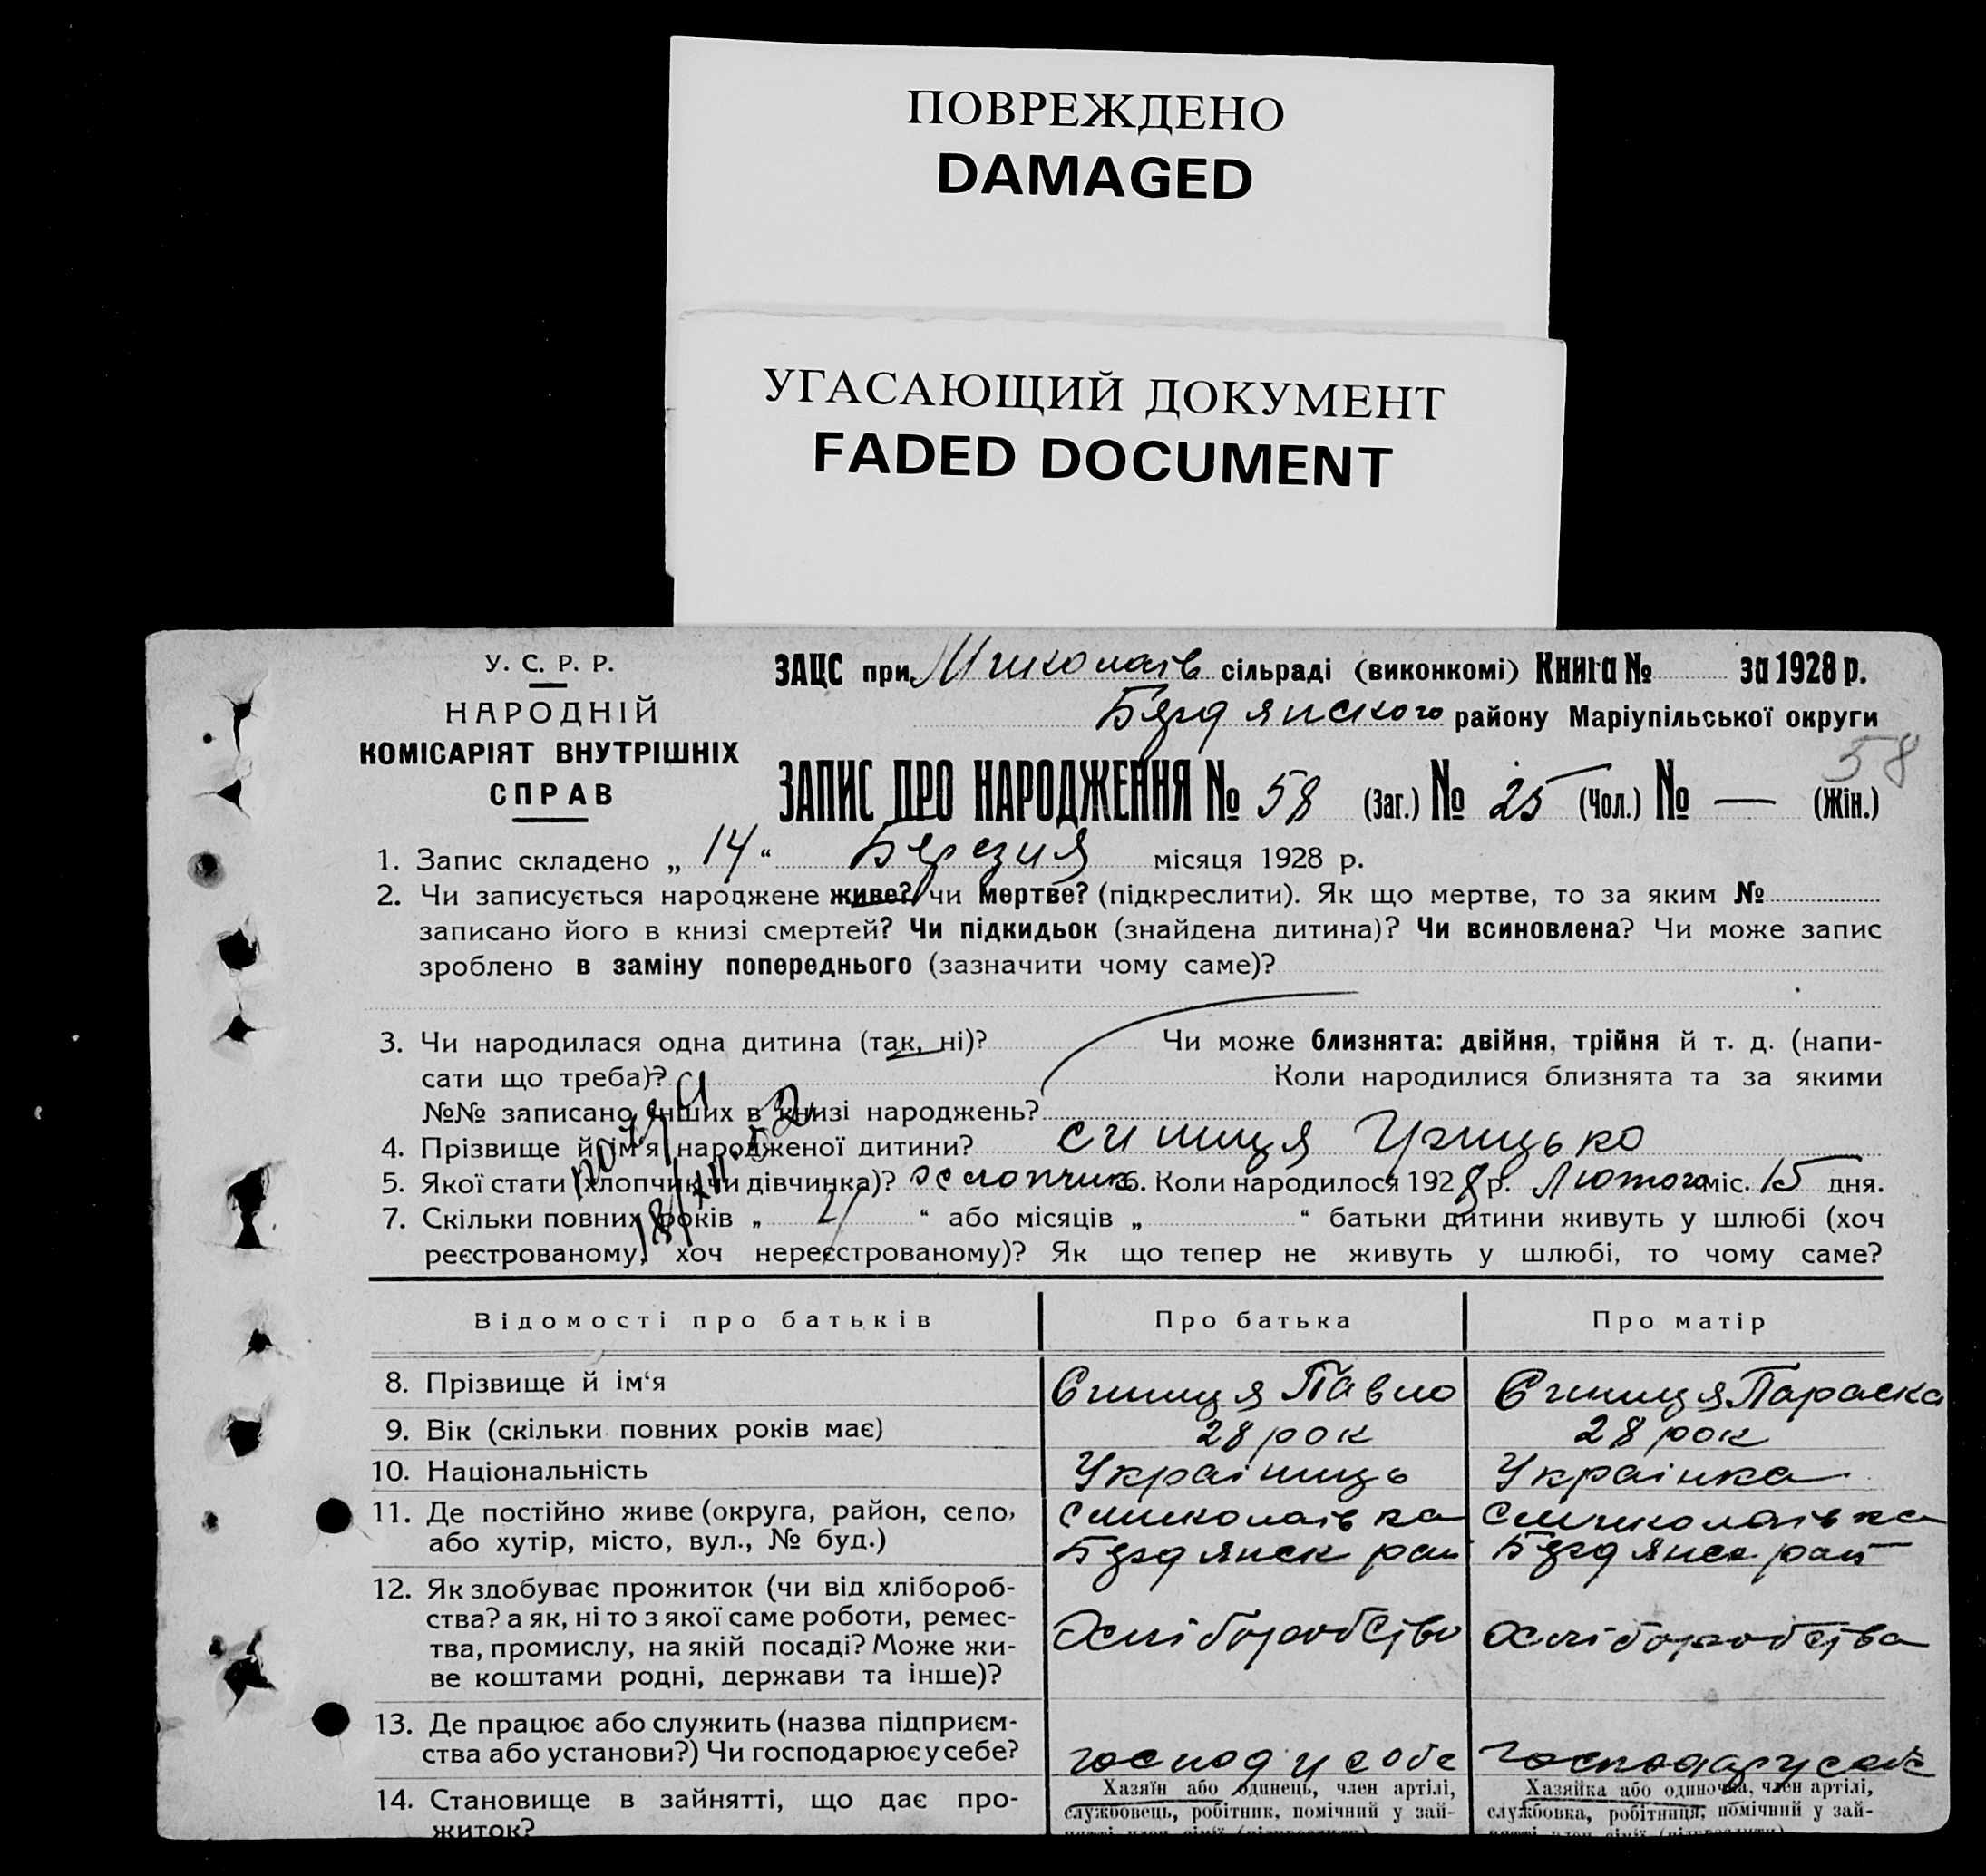 ПОВРЕЖДЕНО
DAMAGED
УГАСАЮЩИЙ ДОКУМЕНТ
FADED DOCUMENT
У. С. Р. Р.
НАРОДНІЙ
КОМІСАРІЯТ ВНУТРІШНІХ
СПРАВ
ЗАЦС при Миколаів сільраді (виконкомі) Книга № за 1928 р.
Бердянского району Маріупільської округи
58
ЗАПИС ПРО НАРОДЖЕННЯ № 58 (Заг.) № 25 (Чол.) № — (Жін.)
1. Запис складено „ 14 “ Березня місяця 1928 р.
2. Чи записується народжене живе? чи мертве? (підкреслити). Як що мертве, то за яким №
записано його в книзі смертей? Чи підкидьок (знайдена дитина)? Чи всиновлена? Чи може запис
зроблено в заміну попереднього (зазначити чому саме)?
3. Чи народилася одна дитина (так, ні)? Чи може близнята: двійня, трійня й т. д. (напи-
сати що треба)? Коли народилися близнята та за якими
№№ записано інших в книзі народжень?
4. Прізвище й ім'я народженої дитини? Синиця Грицько
5. Якої стати (хлопчик чи дівчинка)? хлопчик 6. Коли народилося 1928 р. Лютого міс. 15 дня.
7. Скільки повних років „ “ або місяців „ “ батьки дитини живуть у шлюбі (хоч
реєстрованому, хоч нереєстрованому)? Як що тепер не живуть у шлюбі, то чому саме?
Відомості про батьків Про батька Про матір
8. Прізвище й ім‘я Синиця Павло Синиця Параска
9. Вік (скільки повних років має) 28 рок 28 рок
10. Національність Украіниць Украінка
11. Де постійно живе (округа, район, село, С Миколаівка С Миколаівка
або хутір, місто, вул., № буд.) Бердянск рай Бердянск рай
12. Як здобуває прожиток (чи від хлібороб-
ства? а як, ні то з якої саме роботи, ремес- Хліборобство Хліборобства
тва, промислу, на якій посаді? Може жи-
ве коштами родні, держави та інше)?
13. Де працює або служить (назва підприєм-
ства або установи?) Чи господарює у себе? господ у собе господар у собе
14. Становище в зайнятті, що дає про- Хазяїн або одинець, член артілі, Хазяйка або одиночка, член артілі,
житок? службовець, робітник, помічний у зай- службовка, робітниця, помічний у зай-